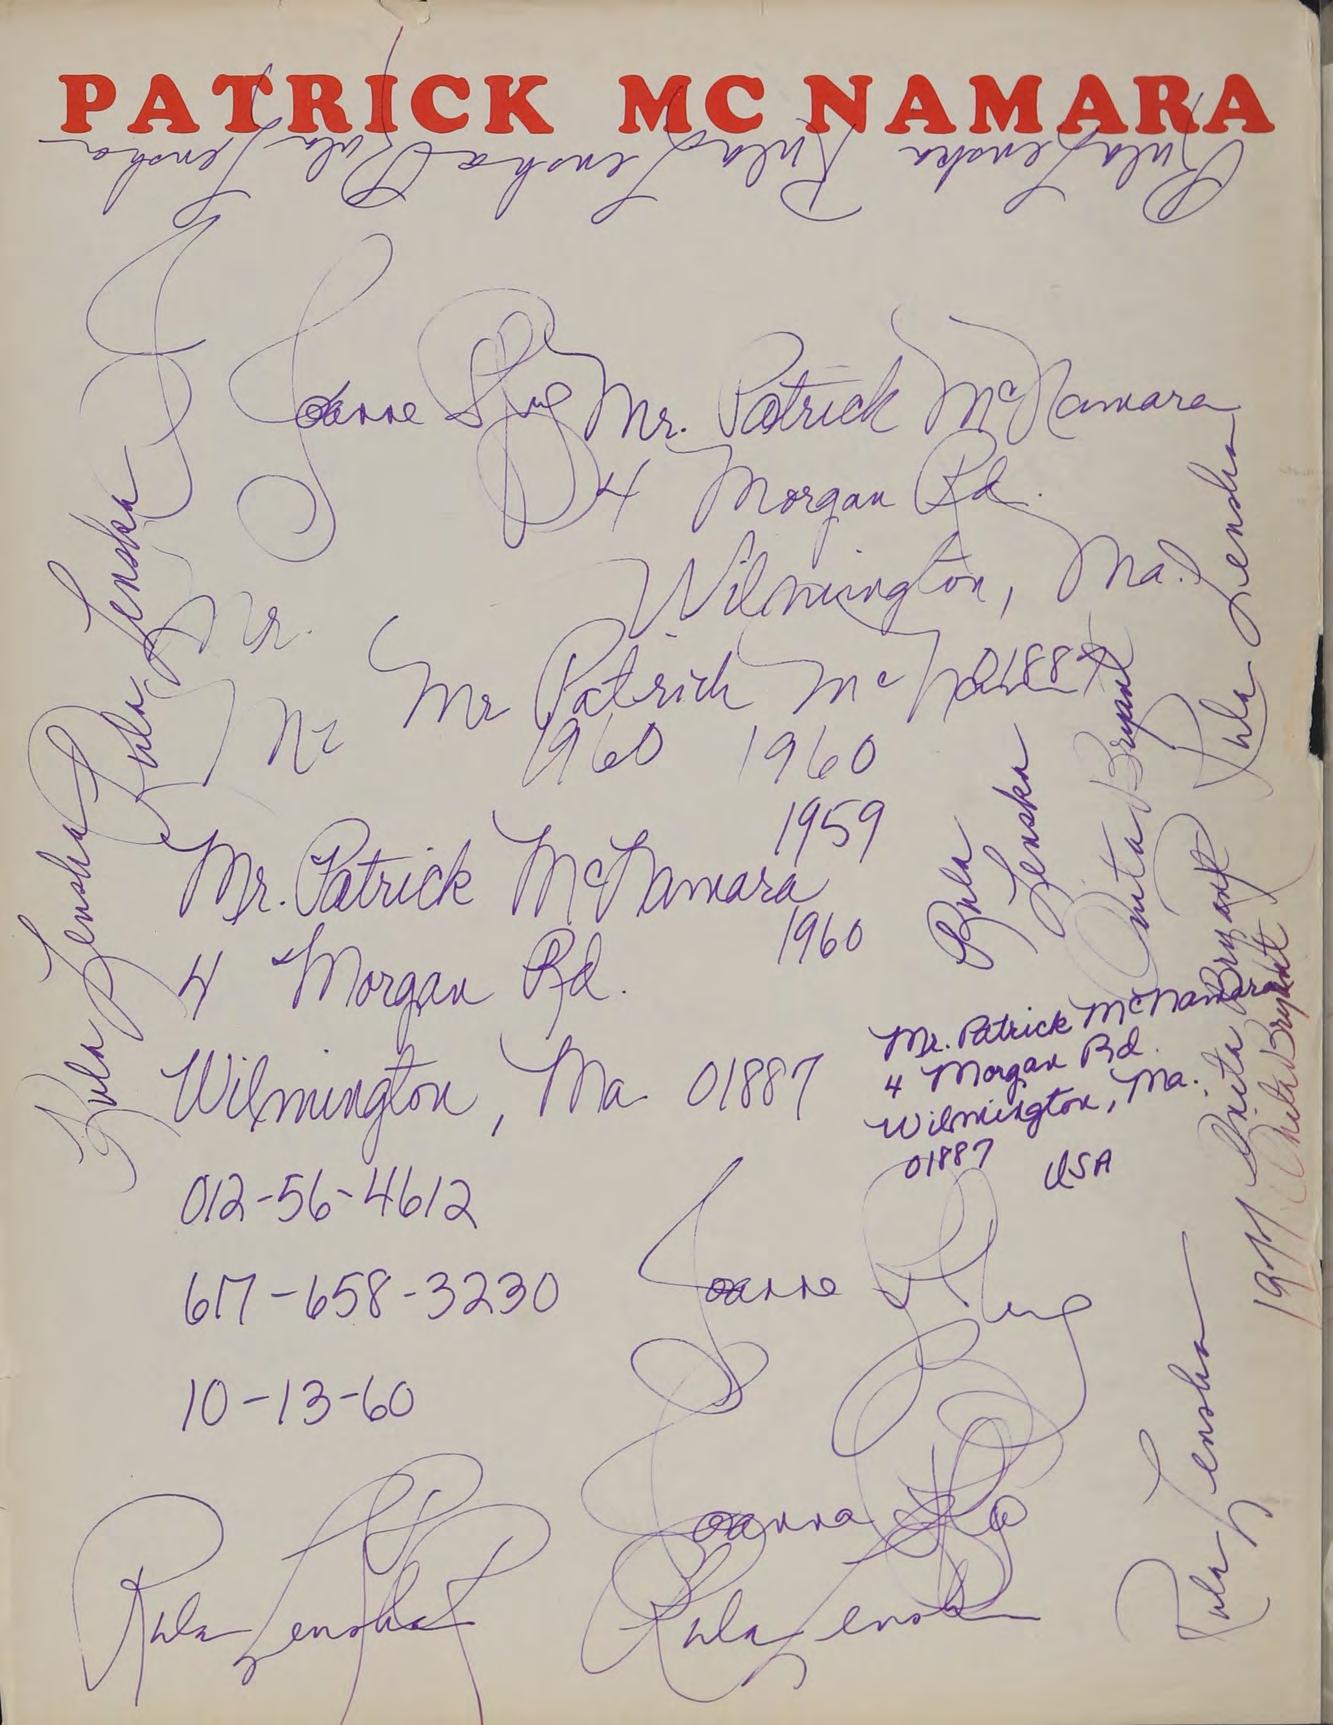 PATRICK MC NAMARA
Rula Lenska Rula Lenska Rula Lenska
Joanne
Mr. Patrick McNamara
4 Morgan Rd.
Wilmington, Ma.
01887
Mr.
Mr Patrick Mc
1960 1960
1959
Mr. Patrick McNamara
1960
4 Morgan Rd.
Wilmington, Ma 01887
012-56-4612
617-658-3230
10-13-60
Rula Lenska
Rula Lenska
Rula Lenska
Rula Lenska
Rula
Lenska
Anita Bryant
Anita Bryant
Anita Bryant
1977
Mr. Patrick McNamara
4 Morgan Rd.
Wilmington, Ma.
01887
USA
Joanne
Joanna
Rula Lenska
Rula Lenska
Rula Lenska